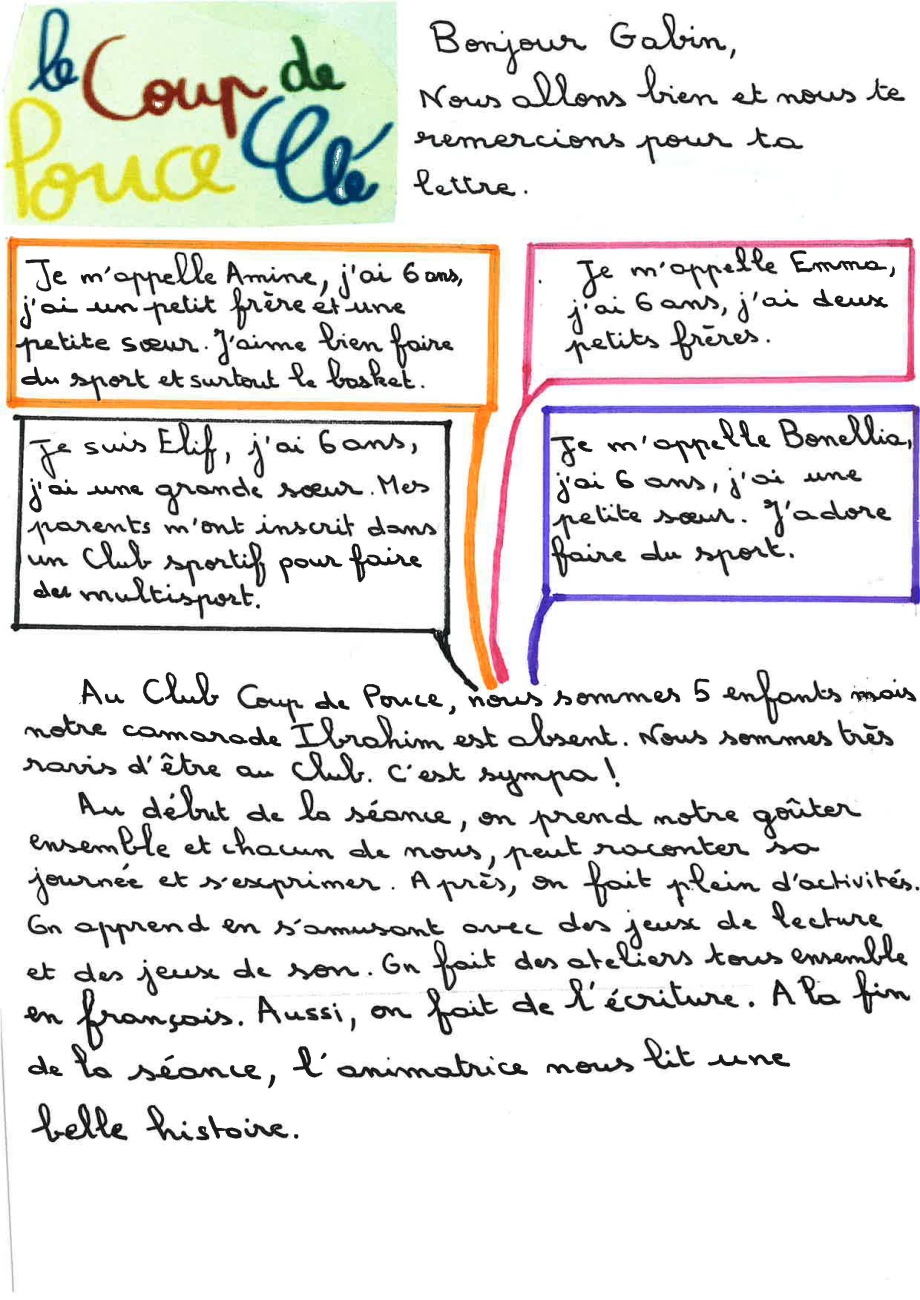 le Coup de
Pouce Clé
Bonjour Gabin,
Nous allons bien et nous te
remercions pour ta
lettre.
Je m'appelle Amine, j'ai 6 ans,
j'ai un petit frère et une
petite sœur. J'aime bien faire
du sport et surtout le basket.
Je m'appelle Emma,
j'ai 6 ans, j'ai deux
petits frères.
Je suis Elif, j'ai 6 ans,
j'ai une grande sœur. Mes
parents m'ont inscrit dans
un Club sportif pour faire
du multisport.
Je m'appelle Bonellia,
j'ai 6 ans, j'ai une
petite sœur. J'adore
faire du sport.
Au Club Coup de Pouce, nous sommes 5 enfants mais
notre camarade Ibrahim est absent. Nous sommes très
ravis d'être au Club. C'est sympa !
Au début de la séance, on prend notre goûter
ensemble et chacun de nous, peut raconter sa
journée et s'exprimer. Après, on fait plein d'activités.
On apprend en s'amusant avec des jeux de lecture
et des jeux de son. On fait des ateliers tous ensemble
en français. Aussi, on fait de l'écriture. A la fin
de la séance, l'animatrice nous lit une
belle histoire.